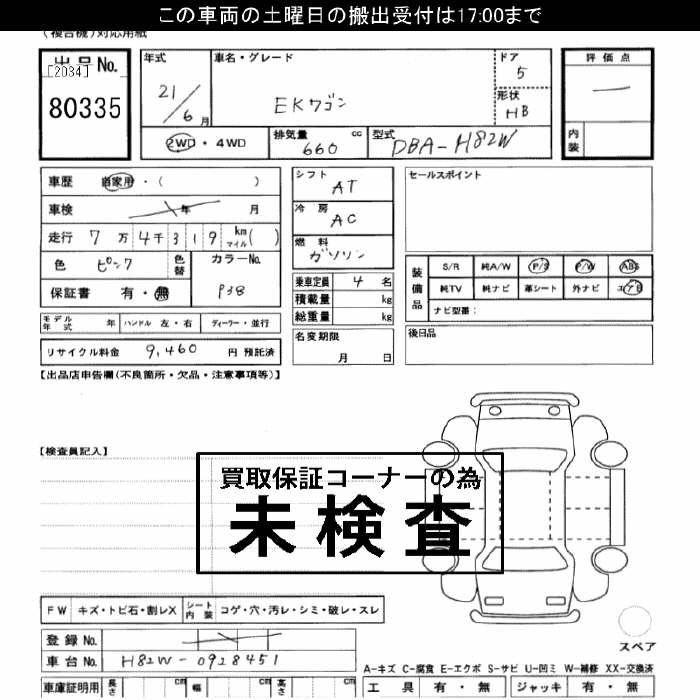 この車両の土曜日の搬出受付は17:00まで
(複合機)対応用紙
出品No.
[2034]
80335
年式
21/6月
車名・グレード
EKワゴン
ドア
5
形状
HB
2WD・4WD
排気量 660 cc
型式 DBA-H82W
評価点
ー
内装
車歴 自家用・( )
車検 年 月
走行 7万4千319km マイル( )
色 ピンク 色替 カラーNo.
保証書 有・無 P38
モデル年式 年 ハンドル 左・右 ディーラー・並行
リサイクル料金 9,460 円 預託済
シフト
AT
冷房
AC
燃料
ガソリン
乗車定員 4名
積載量 kg
総重量 kg
名変期限
月 日
セールスポイント
装備品
S/R 純A/W P/S P/W ABS
純TV 純ナビ 革シート 外ナビ エアB
ナビ型番:
後日品
【出品店申告欄(不良箇所・欠品・注意事項等)】
【検査員記入】
買取保証コーナーの為
未検査
FW キズ・トビ石・割レX シート内装 コゲ・穴・汚レ・シミ・破レ・スレ
登録No.
車台No. H82W-0928451
車庫証明用 長さ cm 幅 cm 高さ cm
スペア
A-キズ C-腐食 E-エクボ S-サビ U-凹ミ W-補修 XX-交換済
工具 有・無 ジャッキ 有・無